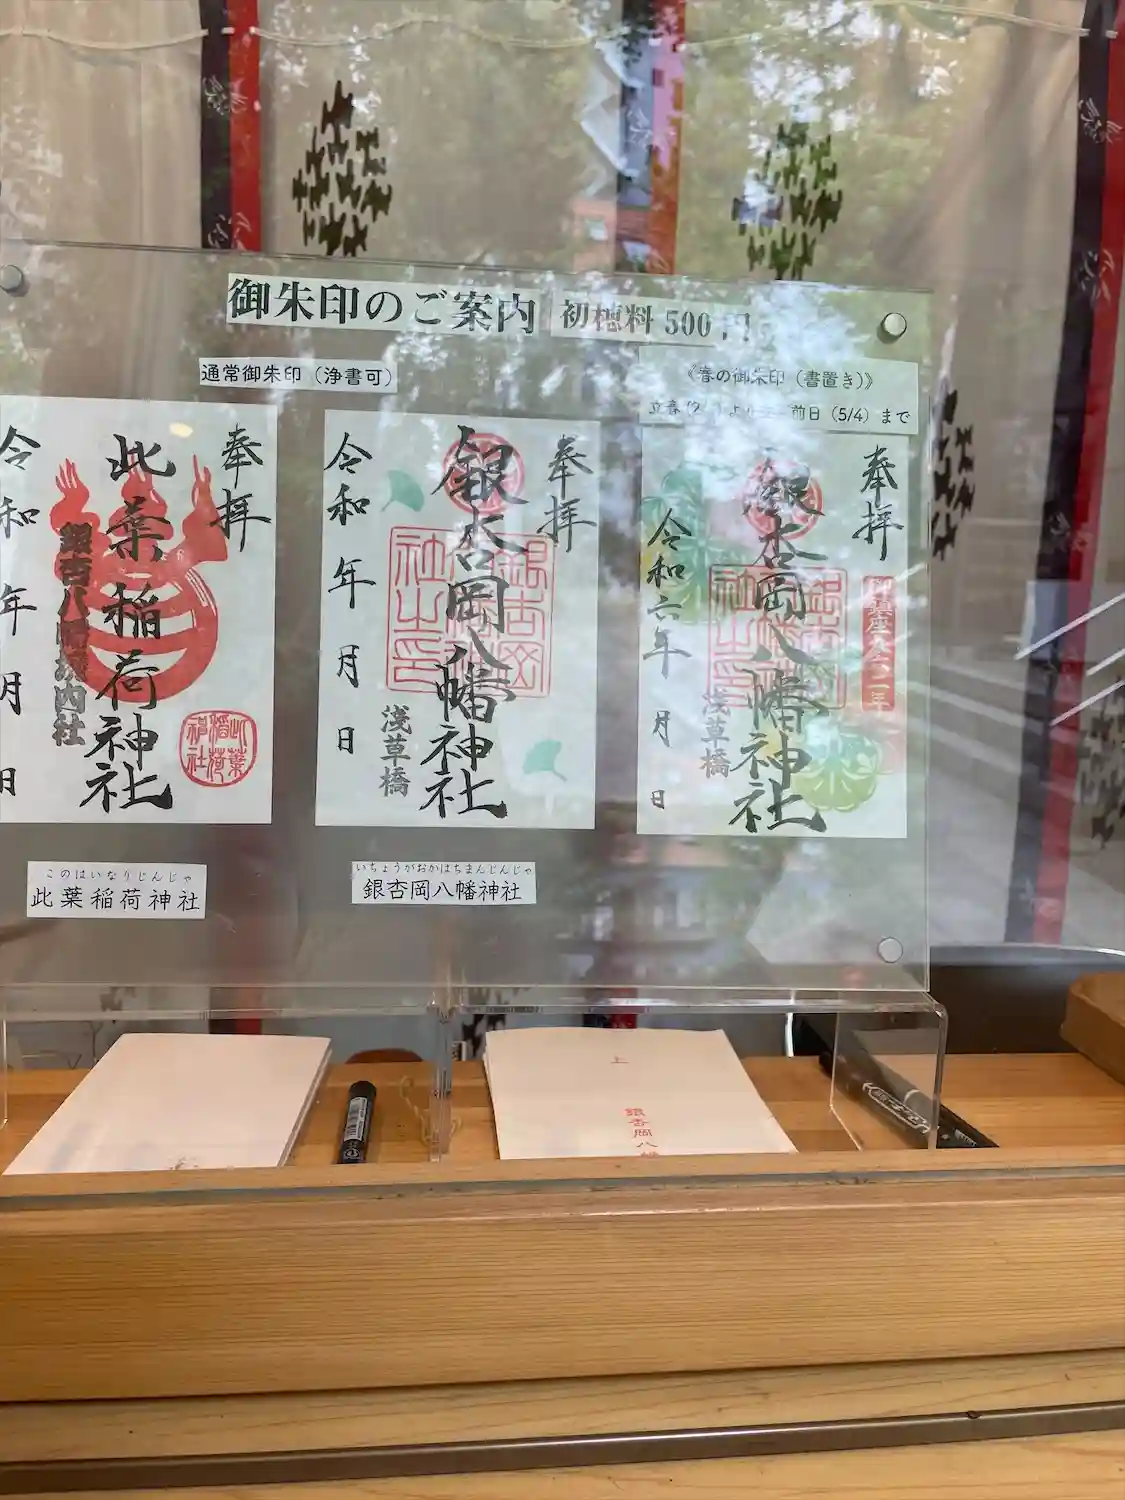 御朱印のご案内 初穂料 500円
通常御朱印（浄書可）
《春の御朱印（書置き）》
前日（5/4）まで
奉拝
此葉稲荷神社
銀杏八幡境内社
令和 年 月 日
此葉稲荷神社
奉拝
銀杏岡八幡神社
浅草橋
令和 年 月 日
奉拝
銀杏岡八幡神社
浅草橋
令和六年 月 日
このはいなりじんじゃ
此葉稲荷神社
いちょうがおかはちまんじんじゃ
銀杏岡八幡神社
上
銀杏岡八幡